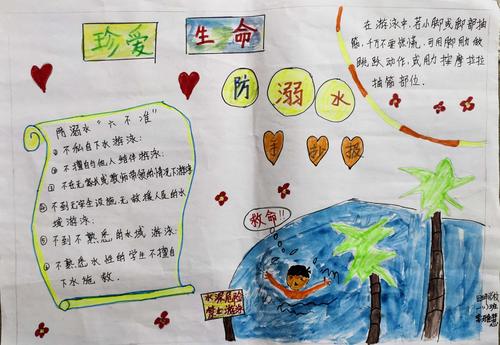 珍爱
生命
防溺水
手抄报
在游泳中,若小脚或脚部抽
筋,千万不要惊慌,可用脚肋做
跳跃动作,或用力按摩拉拉
抽筋部位.
防溺水"六不准"
①不私自下水游泳;
②不擅自与他人结伴游泳;
③不在无家长或教师带领的情况下游泳
④不到无安全设施、无救援人员的水
域游泳;
⑤不到不熟悉的水域游泳;
⑥不熟悉水性的学生不擅自
下水施救.
救命!!
水深危险
禁止游泳